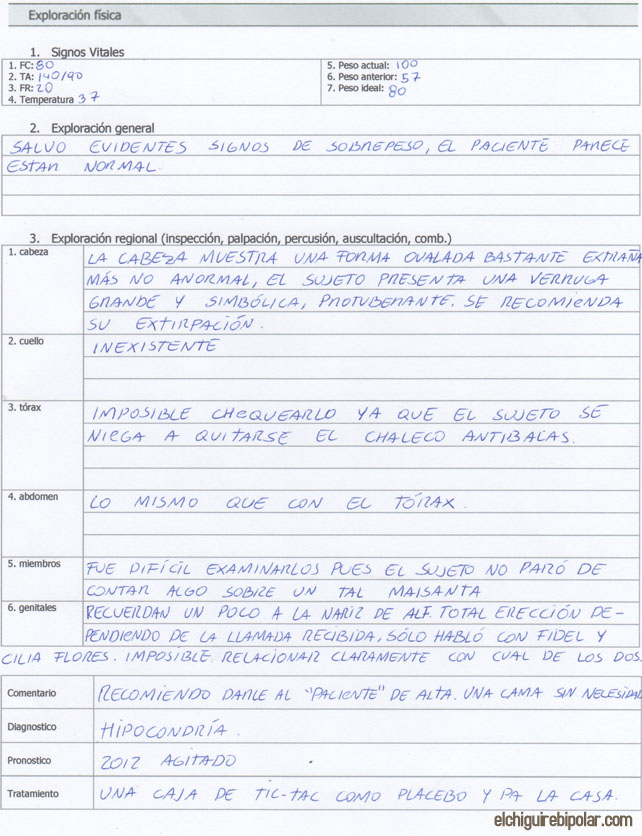 Exploración física
1. Signos Vitales
1. FC: 80
2. TA: 140/90
3. FR: 20
4. Temperatura 37
5. Peso actual: 100
6. Peso anterior: 57
7. Peso ideal: 80
2. Exploración general
SALVO EVIDENTES SIGNOS DE SOBREPESO, EL PACIENTE PARECE
ESTAR NORMAL.
3. Exploración regional (inspección, palpación, percusión, auscultación, comb.)
1. cabeza
LA CABEZA MUESTRA UNA FORMA OVALADA BASTANTE EXTRAÑA
MÁS NO ANORMAL, EL SUJETO PRESENTA UNA VERRUGA
GRANDE Y SIMBÓLICA, PROTUBERANTE. SE RECOMIENDA
SU EXTIRPACIÓN.
2. cuello
INEXISTENTE
3. tórax
IMPOSIBLE CHEQUEARLO YA QUE EL SUJETO SE
NIEGA A QUITARSE EL CHALECO ANTIBALAS.
4. abdomen
LO MISMO QUE CON EL TÓRAX.
5. miembros
FUE DIFÍCIL EXAMINARLOS PUES EL SUJETO NO PARÓ DE
CONTAR ALGO SOBRE UN TAL MAISANTA
6. genitales
RECUERDAN UN POCO A LA NARIZ DE ALF. TOTAL ERECCIÓN DE-
PENDIENDO DE LA LLAMADA RECIBIDA, SÓLO HABLÓ CON FIDEL Y
CILIA FLORES. IMPOSIBLE RELACIONAR CLARAMENTE CON CUAL DE LOS DOS.
Comentario
RECOMIENDO DARLE AL "PACIENTE" DE ALTA. UNA CAMA SIN NECESIDAD
Diagnostico
HIPOCONDRÍA.
Pronostico
2012 AGITADO
Tratamiento
UNA CAJA DE TIC-TAC COMO PLACEBO Y PA LA CASA.
elchiguirebipolar.com